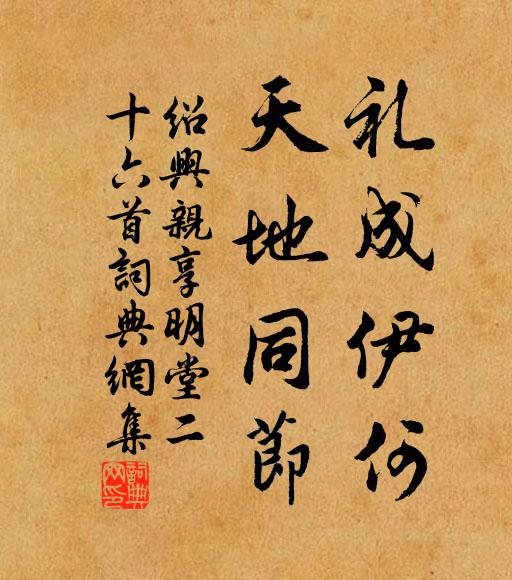 礼成伊何
天地同節
绍興親享明堂二
十六首詞典網集
詞典網印